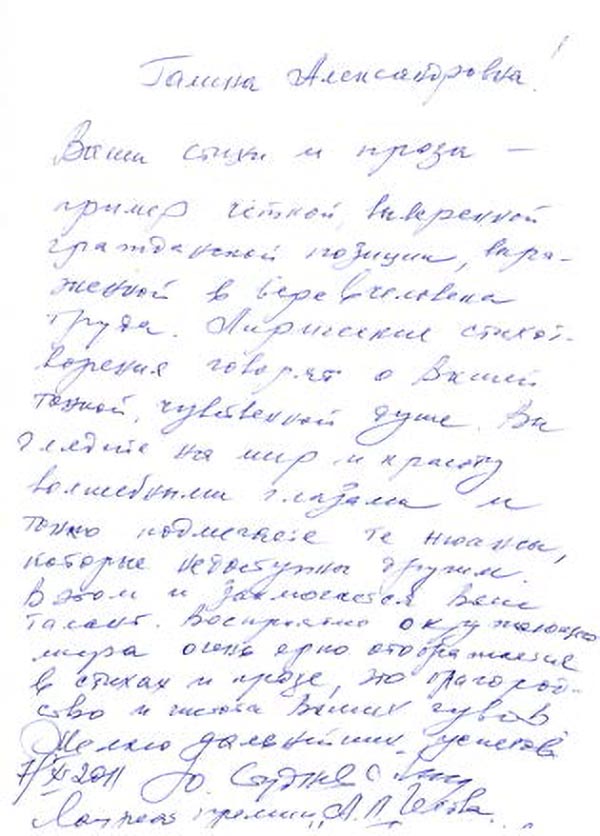 Галина Александровна!
Ваши стихи и проза —
пример чёткой, выверенной
гражданской позиции, выра-
женной в вере в человека
труда. Лирические стихот-
ворения говорят о Вашей
тонкой, чувственной душе. Вы
глядите на мир и красоту
волшебными глазами и
тонко подмечаете те нюансы,
которые недоступны другим.
В этом и заключается Ваш
талант. Восприятие окружающего
мира очень ярко отображается
в стихах и прозе, это благород-
ство и чистота Ваших чувств
Желаю дальнейших успехов
7/XI-2011 Ю.
Лауреат премии А. П. Чехова.